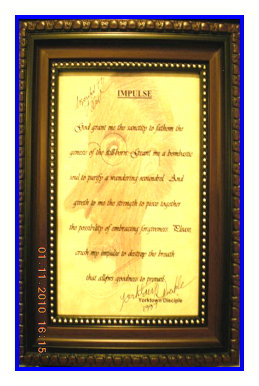 IMPULSE
God grant me the sanctity to fathom the
genesis of the stillborn. Grant me a bombastic
soul to purify a wandering scoundrel. And
give to me the strength to piece together
the possibility of embracing forgiveness. Please,
crush my impulse to destroy the breath
that allows goodness to prevail.
Yorktown Disciple
1997
01-11-2010 16:15